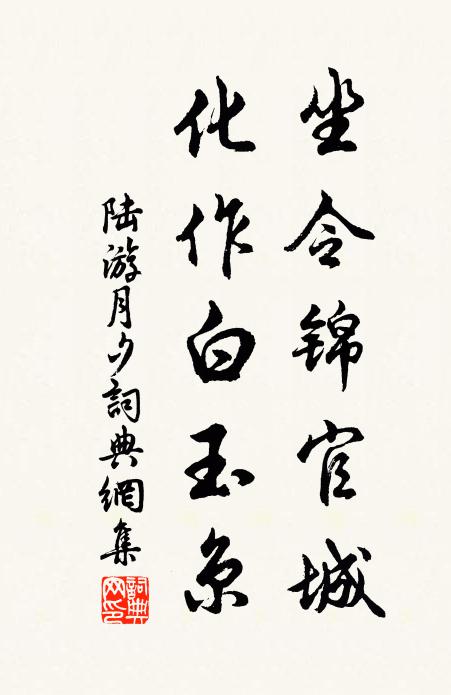 坐令錦官城
化作白玉京
陆游月夕詞典網集
詞典网印